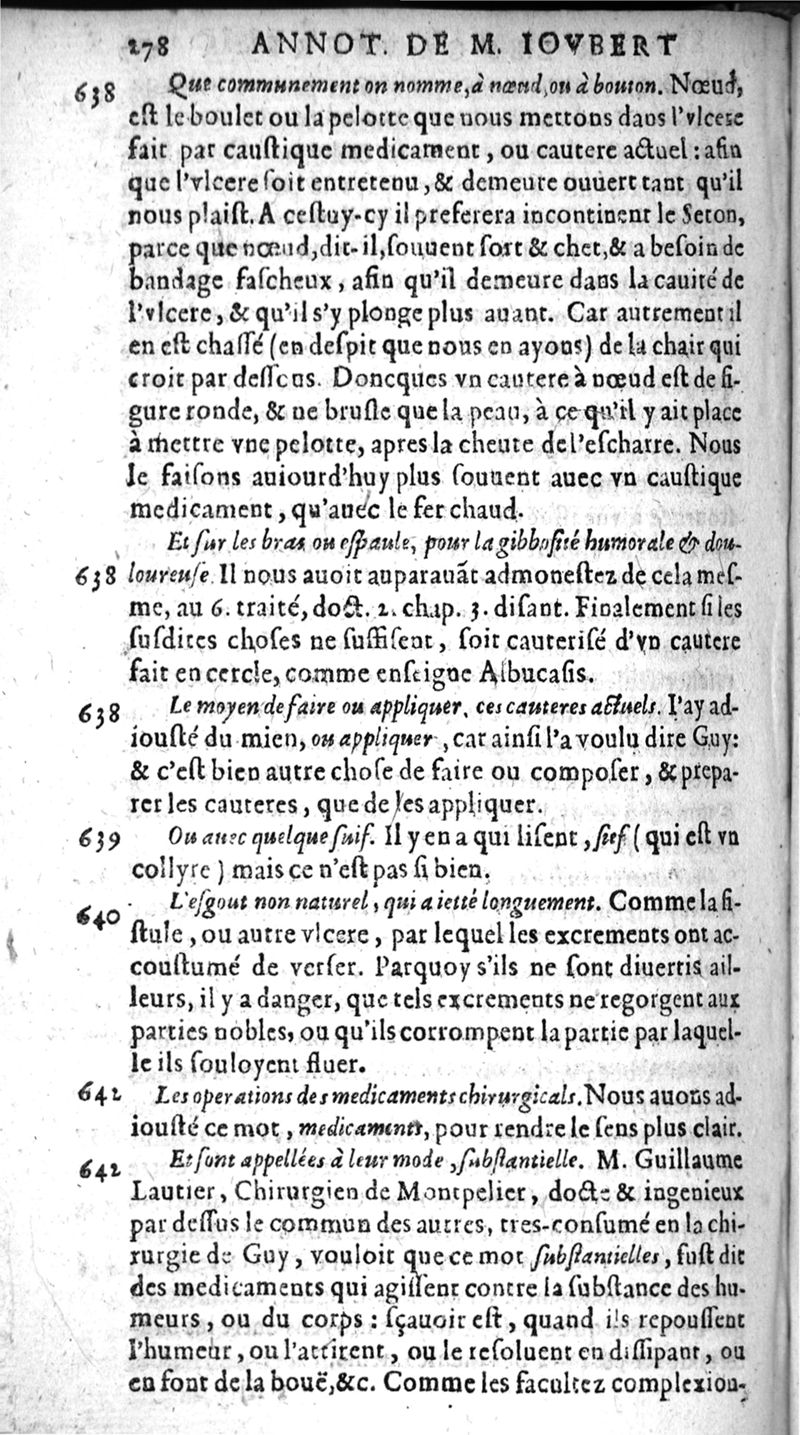 278 ANNOT. DE M. IOVBERT
638 Que communement on nomme, à nœud, ou à bouton. Nœud,
est le boulet ou la pelotte que nous mettons dans l'vlcere
fait par caustique medicament, ou cautere actuel : afin
que l'vlcere soit entretenu, & demeure ouuert tant qu'il
nous plaist. A cestuy-cy il preferera incontinent le Seton,
parce que nœud, dit-il, souuent sort & chet, & a besoin de
bandage fascheux, afin qu'il demeure dans la cauité de
l'vlcere, & qu'il s'y plonge plus auant. Car autrement il
en est chassé (en despit que nous en ayons) de la chair qui
croit par dessens. Doncques vn cautere à nœud est de fi-
gure ronde, & ne brusle que la peau, à ce qu'il y ait place
à mettre vne pelotte, apres la cheute de l'escharre. Nous
le faisons auiourd'huy plus souuent auec vn caustique
medicament, qu'auec le fer chaud.
Et sur les bras ou espaule, pour la gibbosité humorale & dou-
638 loureuse. Il nous auoit auparauãt admonestez de cela mes-
me, au 6. traité, doct. 1. chap. 3. disant. Finalement si les
susdites choses ne suffisent, soit cauterisé d'vn cautere
fait en cercle, comme enseigne Albucasis.
638 Le moyen de faire ou appliquer, ces cauteres actuels. I'ay ad-
iousté du mien, ou appliquer, car ainsi l'a voulu dire Guy:
& c'est bien autre chose de faire ou composer, & prepa-
rer les cauteres, que de les appliquer.
639 Ou auec quelque suif. Il y en a qui lisent, sief (qui est vn
collyre) mais ce n'est pas si bien.
640 L'esgout non naturel, qui a ietté longuement. Comme la fi-
stule, ou autre vlcere, par lequel les excrements ont ac-
coustumé de verser. Parquoy s'ils ne sont diuertis ail-
leurs, il y a danger, que tels excrements ne regorgent aux
parties nobles, ou qu'ils corrompent la partie par laquel-
le ils souloyent fluer.
642 Les operations des medicaments chirurgicals. Nous auons ad-
iousté ce mot, medicaments, pour rendre le sens plus clair.
642 Et sont appellées à leur mode, substantielle. M. Guillaume
Lautier, Chirurgien de Montpelier, docte & ingenieux
par dessus le commun des autres, tres-consumé en la chi-
rurgie de Guy, vouloit que ce mot substantielles, fust dit
des medicaments qui agissent contre la substance des hu-
meurs, ou du corps : sçauoir est, quand ils repoussent
l'humeur, ou l'attirent, ou le resoluent en dissipant, ou
en font de la bouë, &c. Comme les facultez complexion-